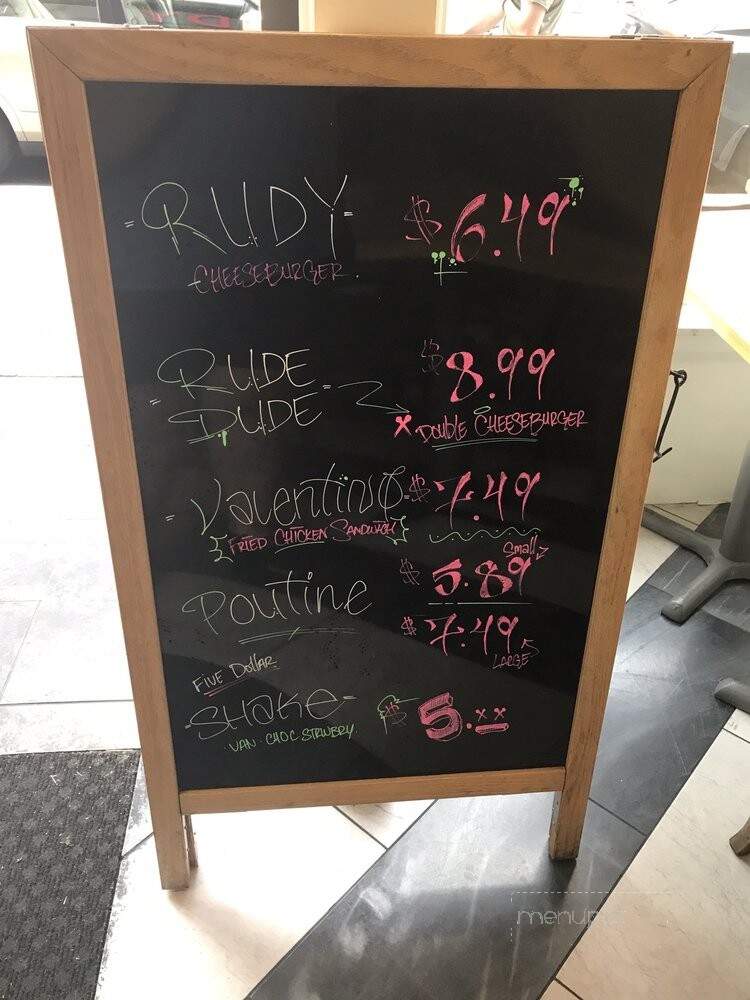 RUDY $6.49
CHEESEBURGER.
RUDE $8.99
DUDE x DOUBLE CHEESEBURGER
Valentino $7.49
FRIED CHICKEN SANDWICH
Small
Poutine $5.89
$7.49
LARGE
FIVE DOLLAR
SHAKE $5.xx
VAN · CHOC STRWBRY.